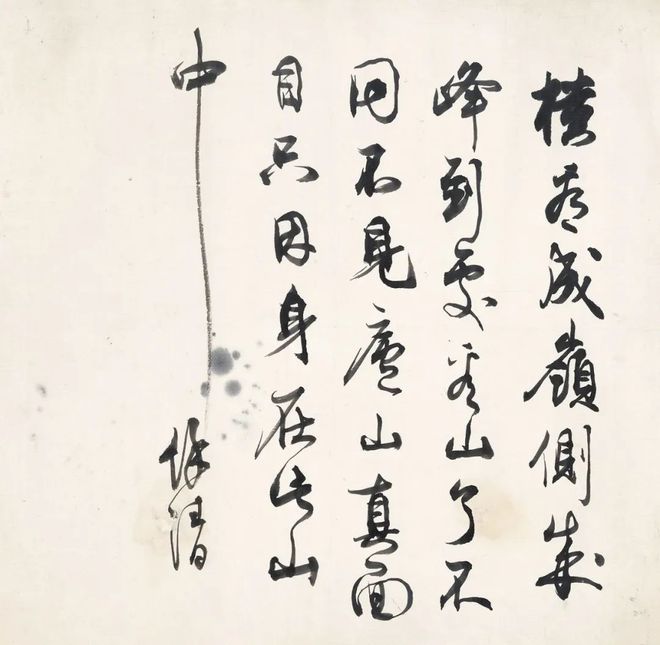 橫看成嶺側成
峰到處看山了不
同不見廬山真面
目只因身在此山
中
徐清